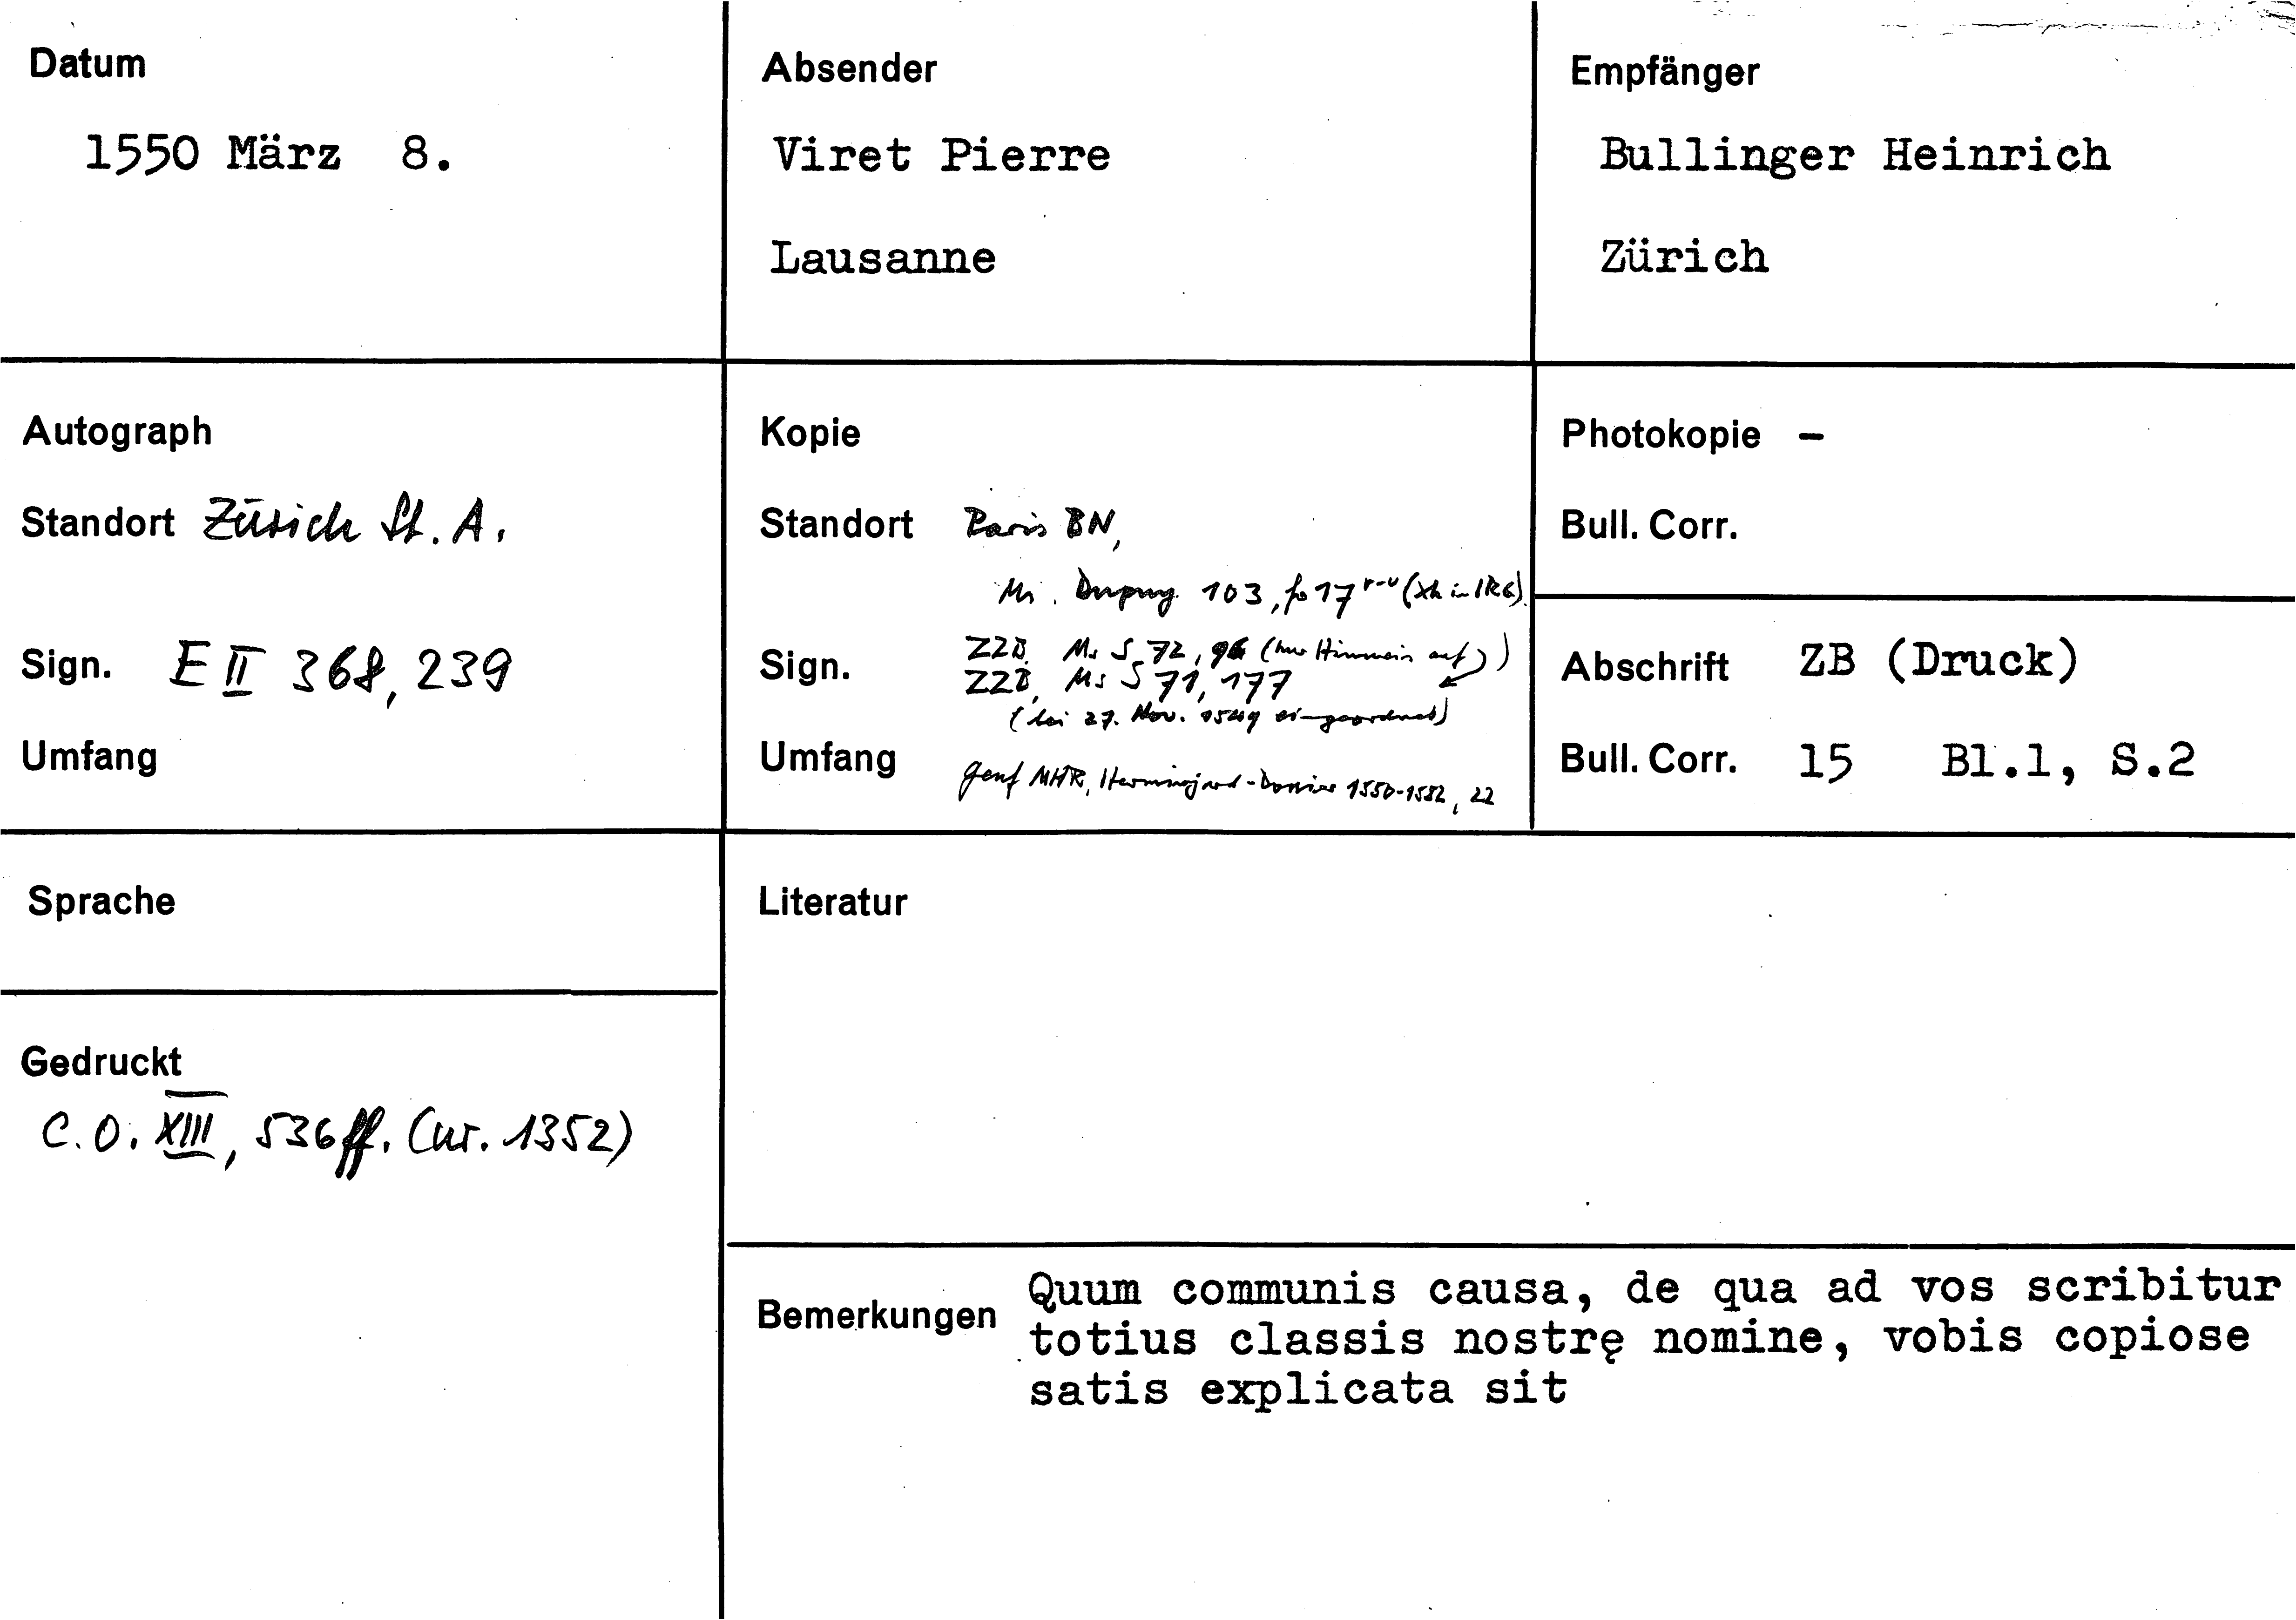 Datum
1550 März 8.
Absender
Viret Pierre
Lausanne
Empfänger
Bullinger Heinrich
Zürich
Autograph
Standort Zürich St. A.
Sign. E II 368, 239
Umfang
Kopie
Standort Paris BN,
Ms. Dupuy 103, fo 17 r-v (Xk in IRG)
Sign. ZZB, Ms S 72, 96 (nur Hinweis auf)
ZZB, Ms S 71, 177
(bei 27. Nov. 1549 eingeordnet)
Umfang Genf MHR, Herminjard-Dossier 1550-1552, 22
Photokopie –
Bull. Corr.
Abschrift ZB (Druck)
Bull. Corr. 15 Bl.1, S.2
Sprache
Gedruckt
C.O. XIII, 536 ff. (nr. 1352)
Literatur
Bemerkungen Quum communis causa, de qua ad vos scribitur
totius classis nostrę nomine, vobis copiose
satis explicata sit